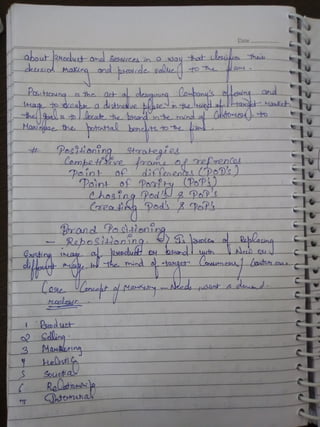 Date
about Product and Services in a way that clarifies their
decision making and provide value to the firm.
Positioning is the act of designing Company's offering and
image to occupy a distinctive place in the mind of target market
the goal is to locate the brand in the mind of Customers, to
Maximise the potential benefits to the firm.
# Positioning Strategies
Competitive frame of references
Point of differences (POD's)
Point of Parity (POP's)
Chosing Pod's & POP's
Creating Pod's & POP's
Brand Positioning
- Repositioning. is process of Replacing
Existing image of product or brand with New or
different image in the mind of target Consumers/
Core Concept of Marketing - Needs, want & demand
1 Product
2 Selling
3 Marketing
4 Holistic
5 Societal
6 Relationship
7 Internal